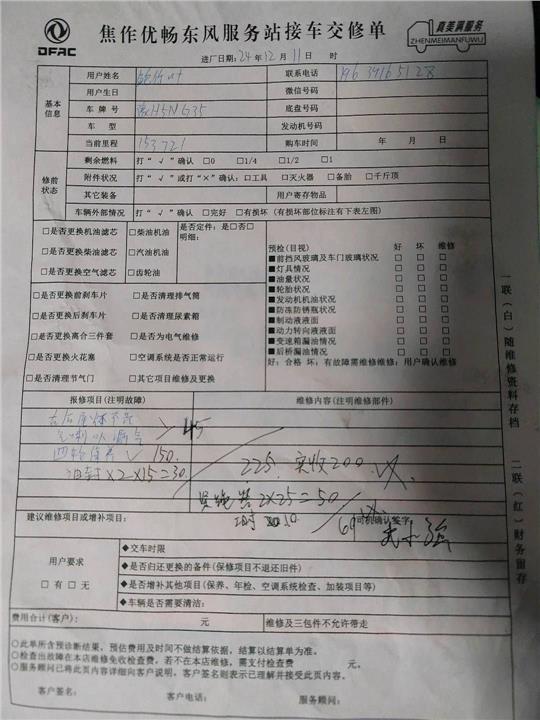 DFAC
焦作优畅东风服务站接车交修单
真美满服务
ZHENMEIMANFUWU
进厂日期:24年12月11日 时
基本信息
用户姓名
联系电话
用户生日
微信号码
车牌号 豫H5NG35
底盘号码
车 型
发动机号码
当前里程 153721
购车时间 年 月 日
修前状态
剩余燃料 打“√”确认 □0 □1/4 □1/2 □1
附件状况 打“√”或打“×”确认:□工具 □灭火器 □备胎 □千斤顶
其它装备
用户寄存物品
车辆外部情况 打“√”确认 □完好 □有损坏(有损坏部位标注有下表左图)
□是否更换机油滤芯 □柴油机油
是否定件:是□否□
明细:
□是否更换柴油滤芯 □汽油机油
□是否更换空气滤芯 □齿轮油
预检(目视) 好 坏 维修
■前挡风玻璃及车门玻璃状况 □ □ □
■灯具情况 □ □ □
■油量状况 □ □ □
■轮胎状况 □ □ □
■发动机机油状况 □ □ □
■防冻防锈瓶状况 □ □ □
■制动液液面 □ □ □
■动力转向液液面 □ □ □
■变速箱漏油情况 □ □ □
■后桥漏油情况 □ □ □
好:合格 坏:有故障需维修维修:用户确认维修
□是否更换前刹车片 □是否清理排气筒
□是否更换后刹车片 □是否清理尿素箱
□是否更换离合三件套 □是否为电气维修
□是否更换火花塞 □空调系统是否正常运行
□是否清理节气门 □其它项目维修及更换
报修项目(注明故障)
维修内容(注明维修部件)
45
气喇叭漏气
四轮保养 √ 150.
油封×2×15=30.
225. 实收200
2×25=50
建议维修项目或增补项目:
司机确认签字
用户要求
□有 □无
◆交车时限
◆是否归还更换的备件(保修项目不退还旧件)
◆是否增补其他项目(保养、年检、空调系统检查、加装项目等)
◆车辆是否需要清洁:
费用合计(客户): 元
维修及三包件不允许带走
○此单所含预诊断结果,预估费用及时间不做结算依据,结算以结算单为准。
○检查出故障在本店维修免收检查费,若不在本店维修,需支付检查费 元。
○服务顾问已将此页内容详细向客户说明,客户签名则表示已理解并接受此页内容。
客户签名: 客户电话: 服务顾问:
一联(白)随维修资料存档 二联(红)财务留存